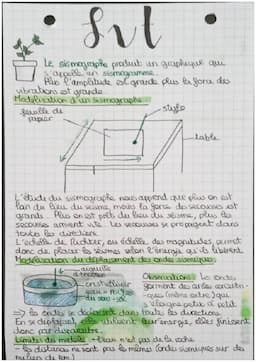 Svt
Le sismographe produit un graphique qui
s'appelle un sismogramme.
Plus l'amplitude est grande plus la force des
vibrations est grande.
Modélisation d'un sismographe
feuille de
papier
stylo
table
L'étude du sismographe nous apprend que plus on est
loin du lieu du séisme, moins la force des secousses est
grande. Plus on est près du lieu du séisme, plus les
secousses Les secousses se propagent dans
toutes les directions.
L'échelle de Richter, ou échelle des magnitudes, permet
donc de placer les séismes selon l'énergie qu'ils libèrent
Modélisation du déplacement des ondes sismiques
aiguille à
Observations: les ondes
forment des arcs
(même centre) qui
=> les ondes se déplacent dans toutes les directions.
En se déplaçant elles utilisent leur énergie, elles finissent
donc par disparaître.
Limites du modèle - L'eau n'est pas de la roche
- les distances ne sont pas la même (ondes sismiques sur des